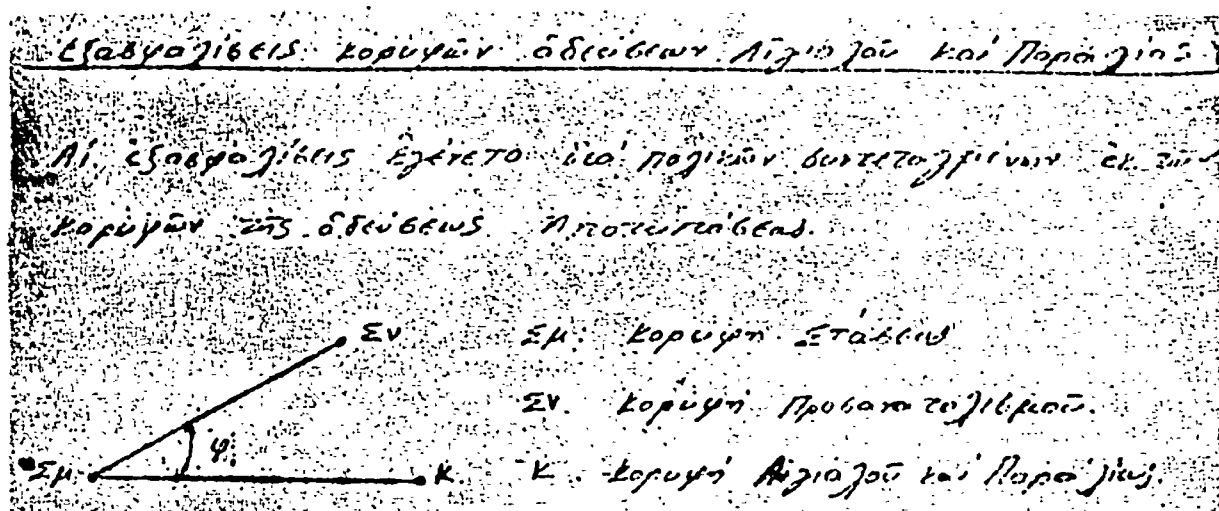 Ἐξασφαλίσεις κορυφῶν ὁδεύσεων Αἰγιαλοῦ καί Παραλίας
Αἱ ἐξασφαλίσεις ἐγένετο διά πολικῶν συντεταγμένων ἐκ τῶν
κορυφῶν τῆς ὁδεύσεως Ἀποτυπώσεως.
Σν
Σμ: Κορυφή Στάσεως
Σν. Κορυφή Προσανατολισμοῦ.
φ
Σμ
Κ
Κ. Κορυφή Αἰγιαλοῦ καί Παραλίας.